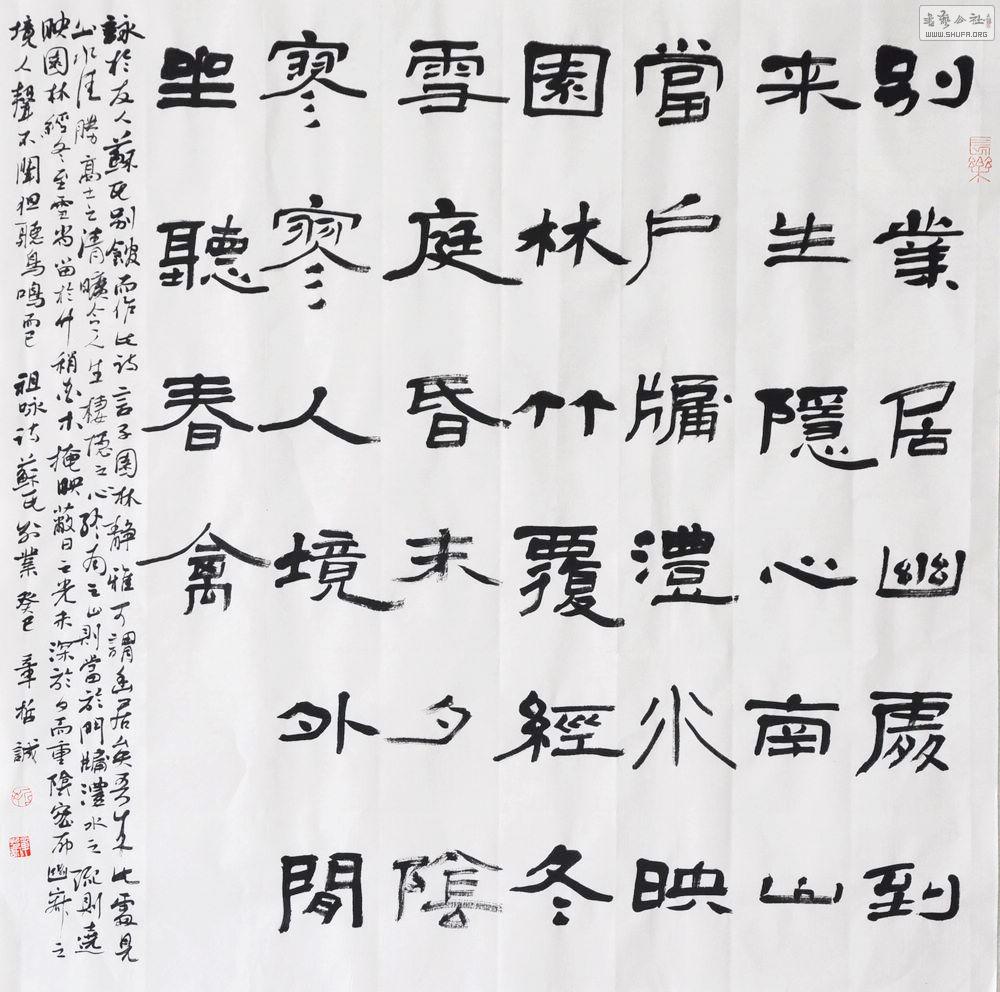 别業居幽處到
来生隱心南山
當户牖澧水映
園林竹覆經冬
雪庭昏未夕陰
寥寥人境外閒
坐聽春禽
詠於友人蘇氏别館而作此詩言子園林靜雅可謂幽居矣吾来此處見
山水佳勝高士之清曠令人生棲隱之心終南之山則當於門牖澧水之流則遶
映園林經冬至雪尚留於竹稍花木掩映蔽日之光未深於夕而重陰密布幽寂之
境人聲不聞但聽鳥鳴而已 祖咏詩蘇氏别業 癸巳 章哲誠
長樂
書藝公社
WWW.SHUFA.ORG